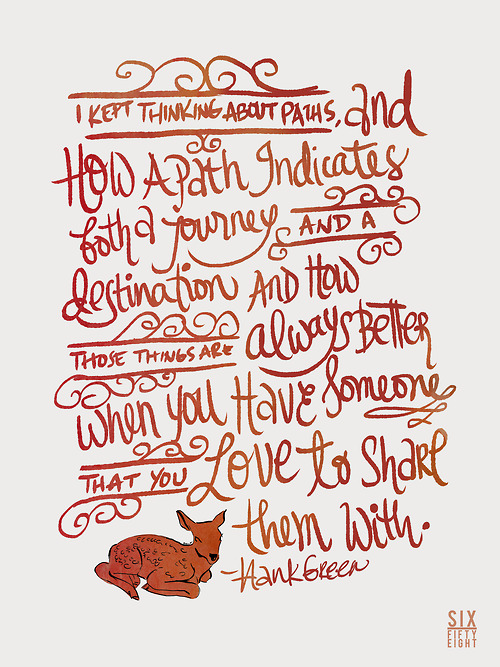 I KEPT THINKING ABOUT PATHS, and
HOW A Path Indicates
both a journey AND A
destination AND HOW
THOSE THINGS ARE always Better
when you HAVE Someone
THAT YOU LOVE to SHARE
them With.
-Hank Green
SIX
FIFTY
EIGHT